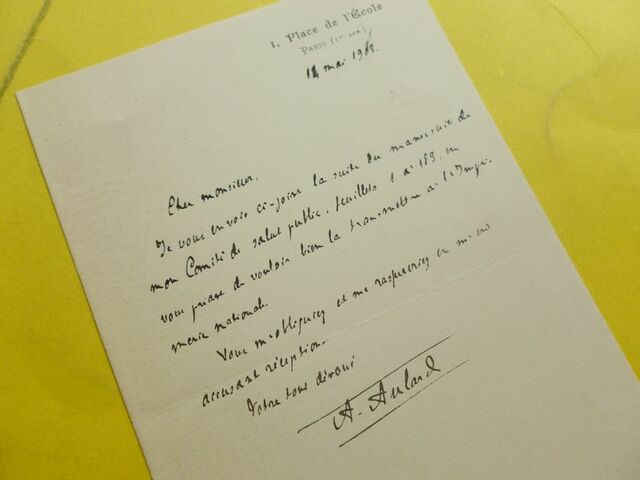 1, Place de l'École
PARIS (1er arr.)
14 mai 1908.
Cher monsieur,
Je vous envoie ci-joint la suite du manuscrit de
mon Comité de salut public, feuillets 1 à 183, en
vous priant de vouloir bien la transmettre à l'Impri-
merie nationale.
Vous m'obligerez et me rassurerez en m'en
accusant réception.
Votre tout dévoué
A. Aulard